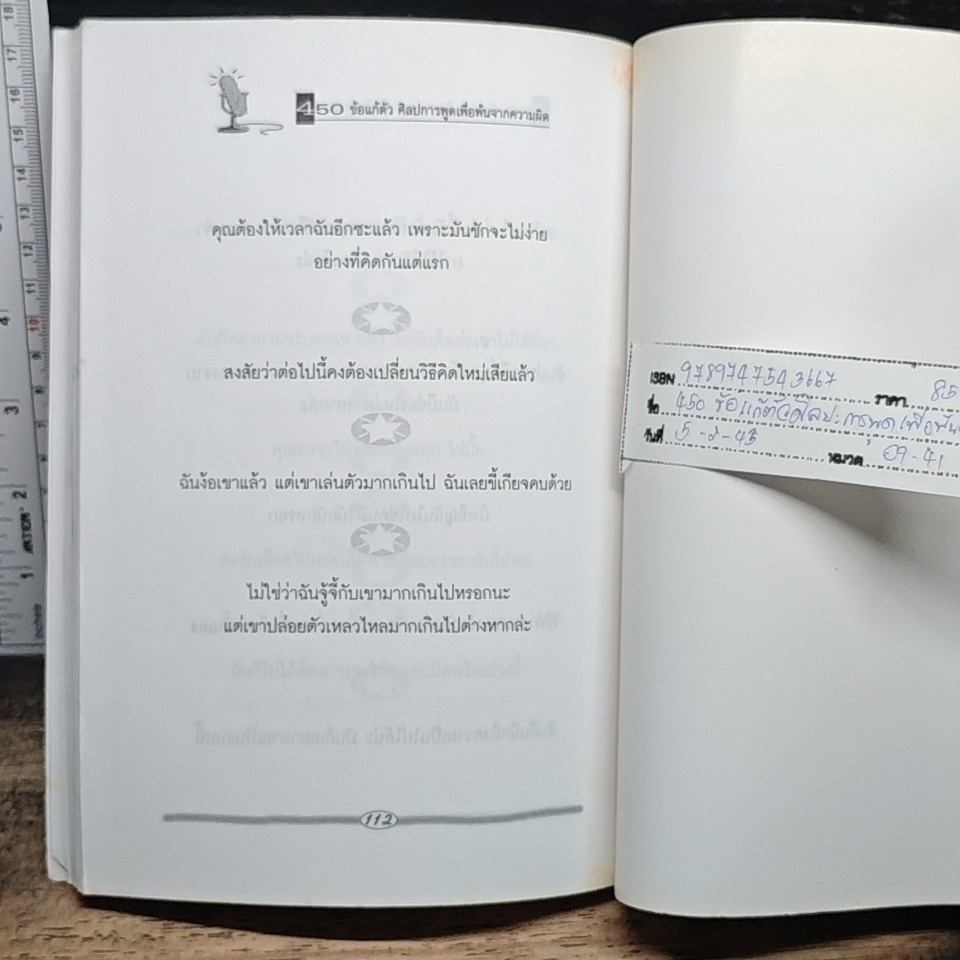 450 ข้อแก้ตัว ศิลปการพูดเพื่อพ้นจากความผิด
คุณต้องให้เวลาฉันอีกซะแล้ว เพราะมันชักจะไม่ง่าย
อย่างที่คิดกันแต่แรก
สงสัยว่าต่อไปนี้คงต้องเปลี่ยนวิธีคิดใหม่เสียแล้ว
ฉันง้อเขาแล้ว แต่เขาเล่นตัวมากเกินไป ฉันเลยขี้เกียจคบด้วย
ไม่ใช่ว่าฉันจู้จี้กับเขามากเกินไปหรอกนะ
แต่เขาปล่อยตัวเหลวไหลมากเกินไปต่างหากล่ะ
112
ISBN 9789747543667 ราคา 85
ชื่อ 450 ข้อแก้ตัวศิลปะการพูดเพื่อพ้น
วันที่ 5-2-43
หมวด 09-41
18
17
16
15
14
13
12
11
10
9
8
7
6
5
4
3
2
1
4
3
2
1
inches